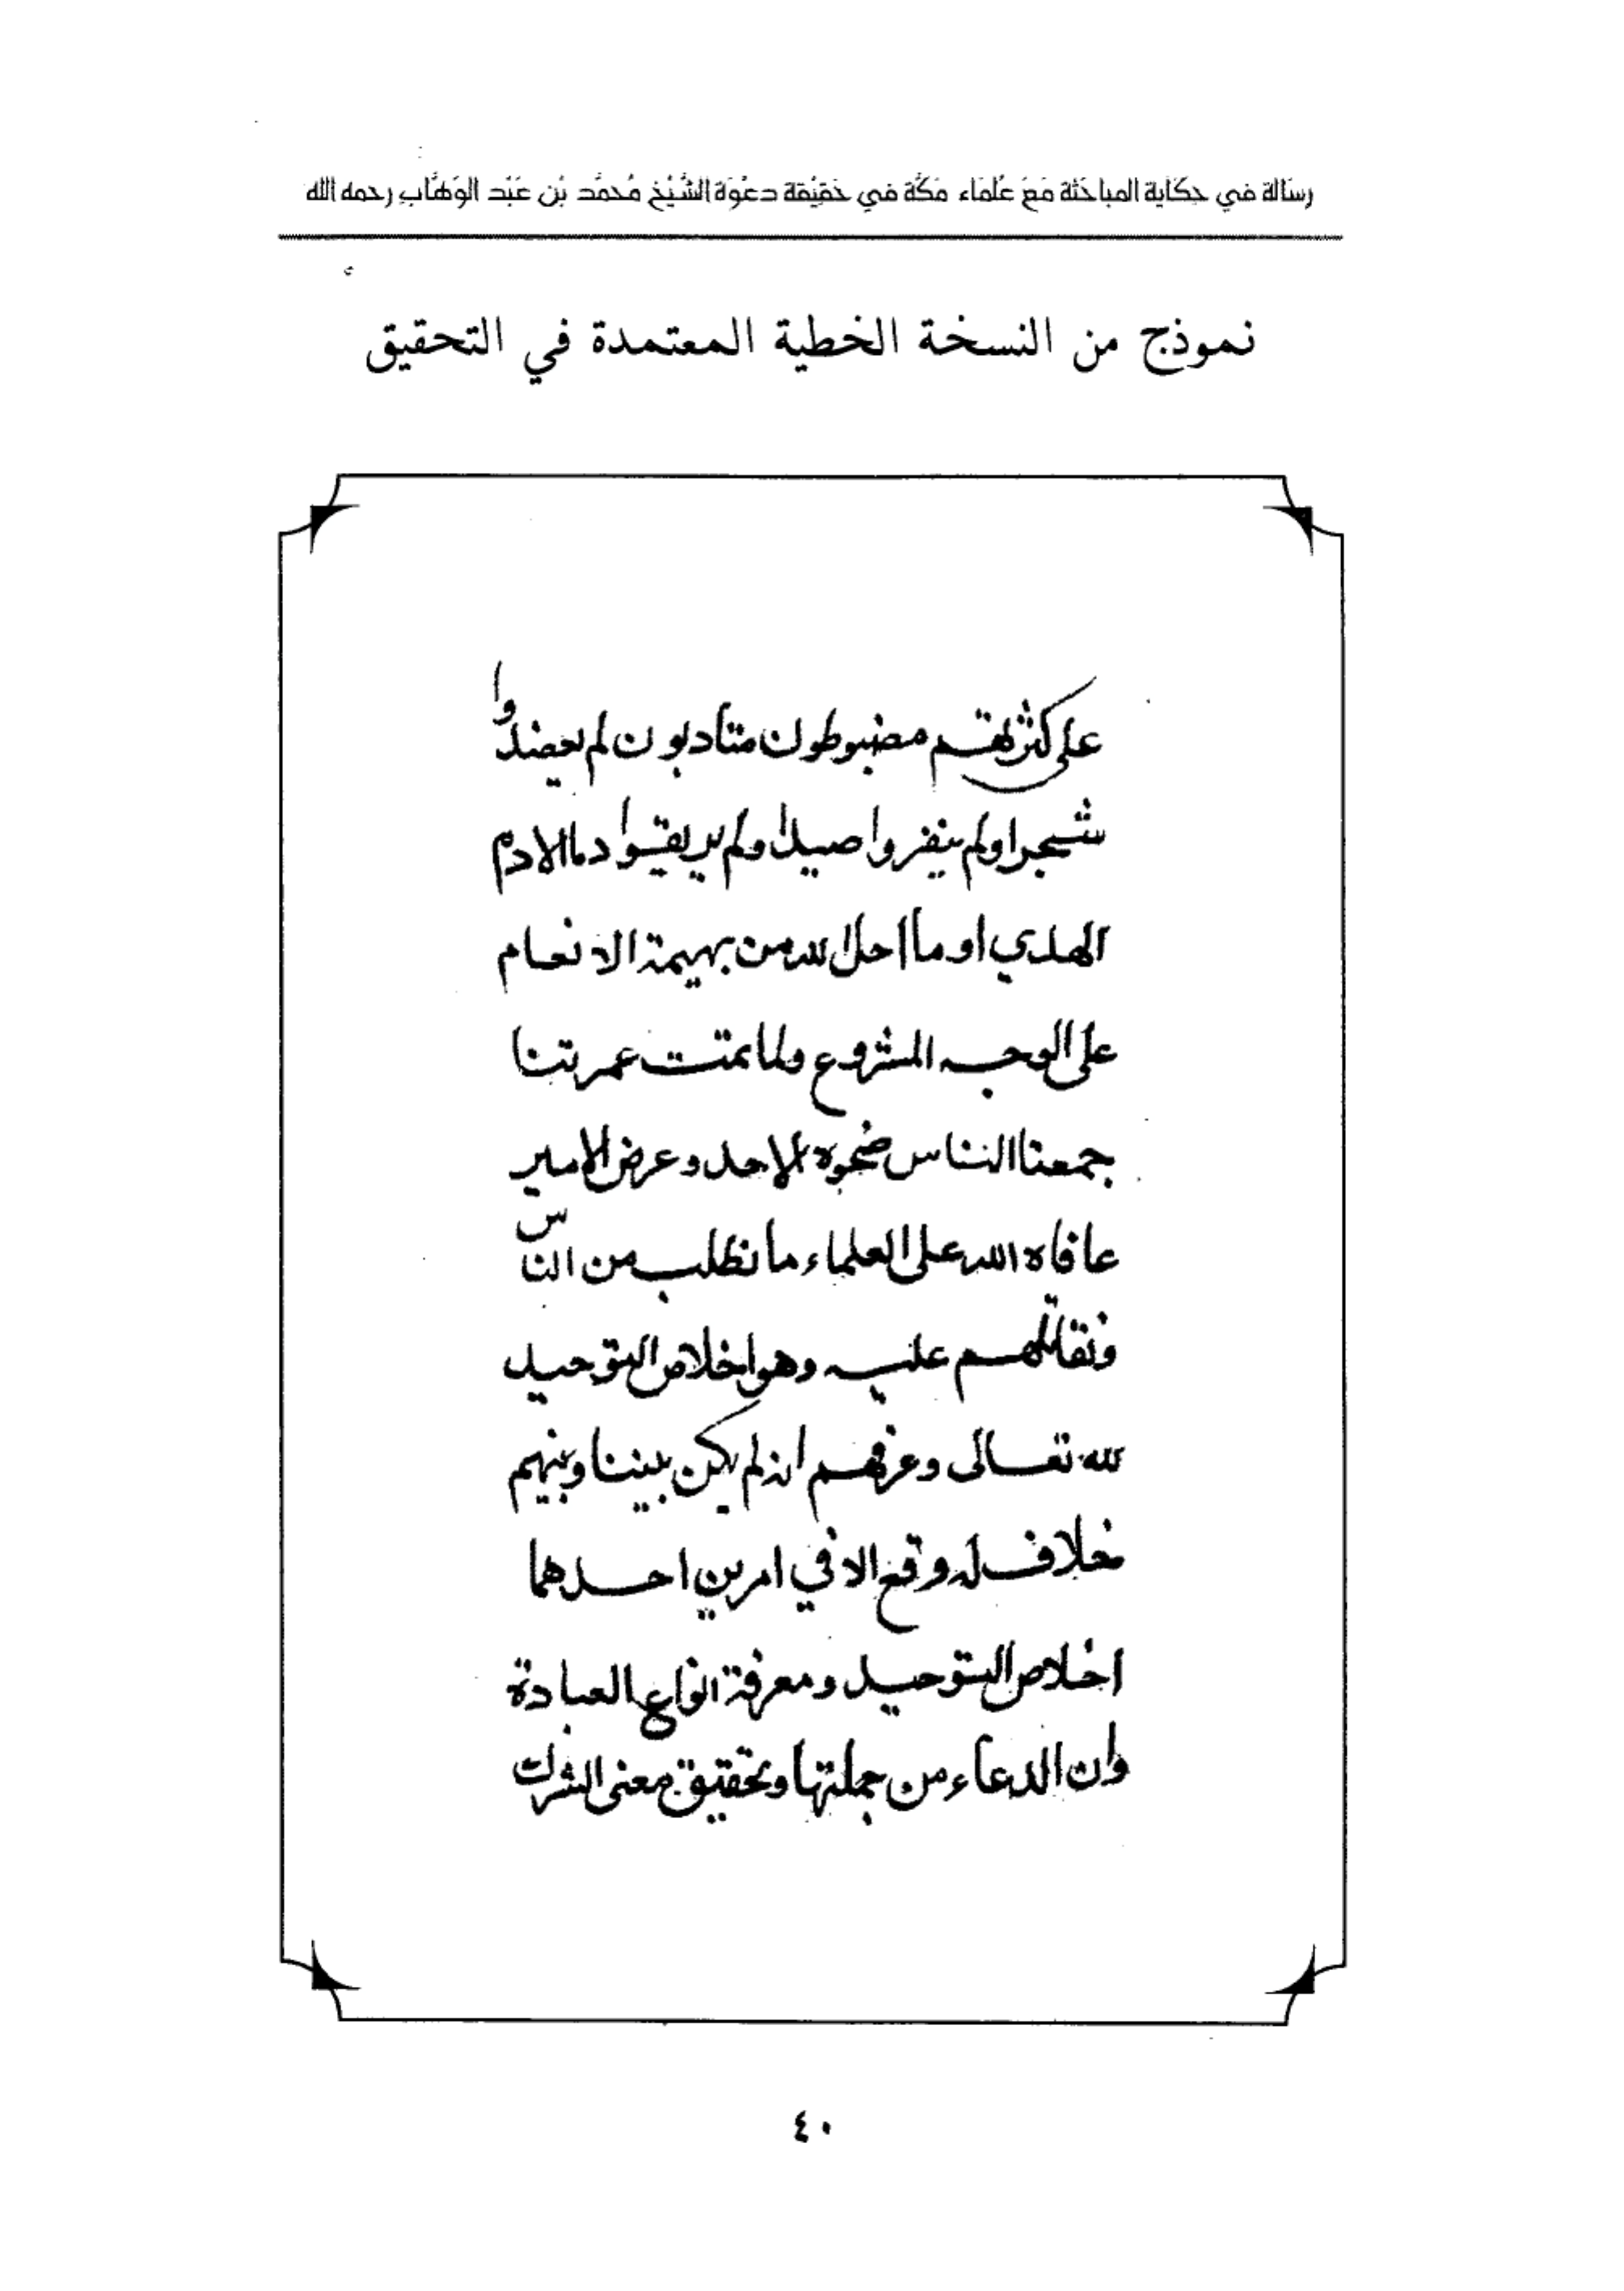 رسَالة في حِكَاية المباحَثة مَعَ عُلمَاء مَكَّة في حَقيْقة دعْوَة الشَّيْخ مُحمَّد بْن عَبْد الوَهَّاب رحمه الله
نموذج من النسخة الخطية المعتمدة في التحقيق
على كثرتهم مضبوطون متأدبون لم يعضدوا
شجرا ولم ينفروا صيدا ولم يريقوا دما الا دم
الهدي او ما احل الله من بهيمة الانعام
على الوجه المشروع ولما تمت عمرتنا
جمعنا الناس ضحوة الاحد وعرض الامير
عافاه الله على العلماء ما نطلب من الناس
ونقاتلهم عليه وهو اخلاص التوحيد
لله تعالى وعرفهم انه لم يكن بيننا وبينهم
خلاف له وقع الا في امرين احدهما
اخلاص التوحيد ومعرفة انواع العبادة
وان الدعاء من جملتها وتحقيق معنى الشرك
٤٠